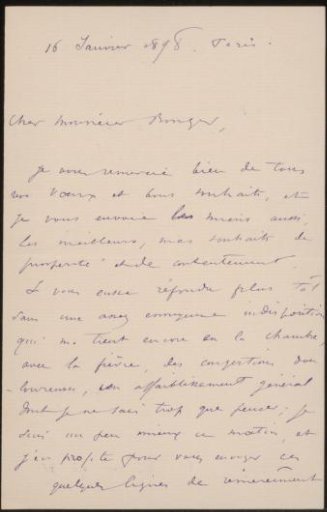 16 Janvier 1898. Paris.
Cher Monsieur Bonger,
Je vous remercie bien de tous
vos vœux et bons souhaits, et
je vous envoie les miens aussi,
les meilleurs, mes souhaits de
prospérité et de contentement.
Je vous eusse répondu plus tôt
sans une assez ennuyeuse indisposition
qui me tient encore en la chambre,
avec la fièvre, des congestions dou-
loureuses, un affaiblissement général
dont je ne sais trop que penser; je
suis un peu mieux ce matin, et
j'en profite pour vous envoyer ces
quelques lignes de remerciement